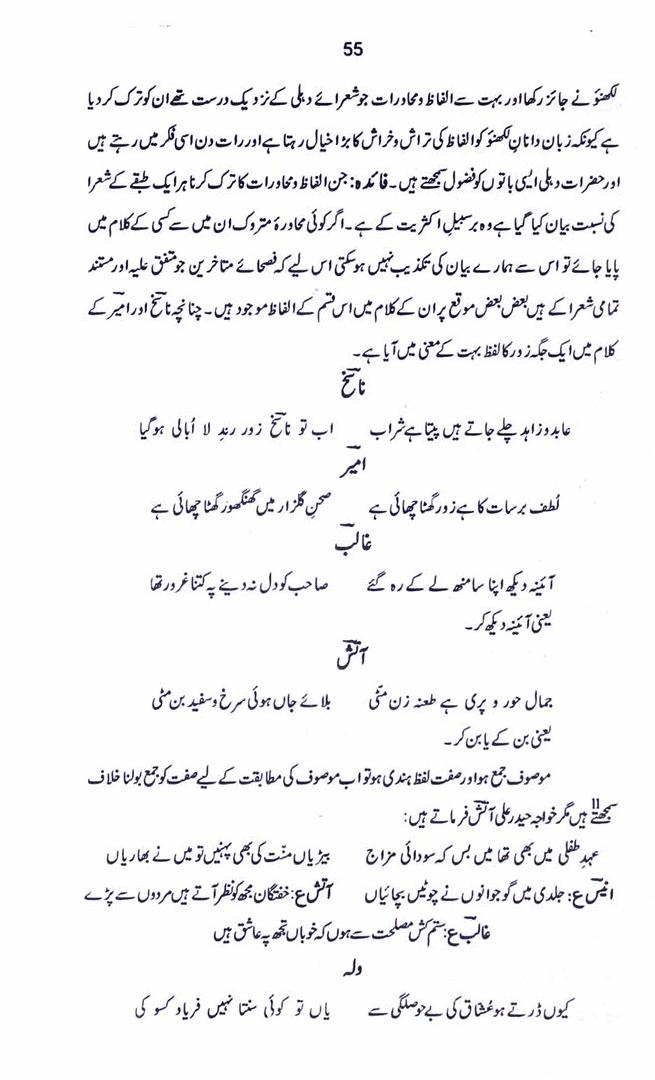 55
لکھنؤ نے جائز رکھا اور بہت سے الفاظ و محاورات جو شعرائے دہلی کے نزدیک درست تھے ان کو ترک کر دیا
ہے کیونکہ زبان دانانِ لکھنؤ کو الفاظ کی تراش و خراش کا بڑا خیال رہتا ہے اور رات دن اسی فکر میں رہتے ہیں
اور حضرات دہلی ایسی باتوں کو فضول سمجھتے ہیں۔ فائدہ: جن الفاظ و محاورات کا ترک کرنا ہر ایک طبقے کے شعرا
کی نسبت بیان کیا گیا ہے وہ بر سبیلِ اکثریت کے ہے۔ اگر کوئی محاورۂ متروک ان میں سے کسی کے کلام میں
پایا جائے تو اس سے ہمارے بیان کی تکذیب نہیں ہو سکتی اس لیے کہ فصحائے متاخرین جو متفق علیہ اور مستند
تمامی شعرا کے ہیں بعض بعض موقع پر ان کے کلام میں اس قسم کے الفاظ موجود ہیں۔ چنانچہ ناسخؔ اور امیرؔ کے
کلام میں ایک جگہ زور کا لفظ بہت کے معنی میں آیا ہے۔
ناسخؔ
عابد و زاہد چلے جاتے ہیں پیتا ہے شراب اب تو ناسخؔ زور رندِ لا اُبالی ہوگیا
امیرؔ
لُطف برسات کا ہے زور گھٹا چھائی ہے صحنِ گلزار میں گھنگھور گھٹا چھائی ہے
غالبؔ
آئینہ دیکھ اپنا سا منھ لے کے رہ گئے صاحب کو دل نہ دینے پہ کتنا غرور تھا
یعنی آئینہ دیکھ کر۔
آتشؔ
جمال حور و پری ہے طعنہ زن مٹّی بلائے جاں ہوئی سرخ و سفید بن مٹی
یعنی بن کے یا بن کر۔
موصوف جمع ہو اور صفت لفظ ہندی ہو تو اب موصوف کی مطابقت کے لیے صفت کو جمع بولنا خلاف
سمجھتے 11 ہیں مگر خواجہ حیدر علی آتشؔ فرماتے ہیں:
عہدِ طفلی میں بھی تھا میں بس کہ سودائی مزاج بیڑیاں منّت کی بھی پہنیں تو میں نے بھاریاں
انیسؔ ع: جلدی میں گو جوانوں نے چوٹیں بچائیاں آتشؔ ع: خفتگان مجھ کو نظر آتے ہیں مردوں سے پڑے
غالبؔ ع: ستم کش مصلحت سے ہوں کہ خوباں تجھ پہ عاشق ہیں
ولہ
کیوں ڈرتے ہو عُشاق کی بے حوصلگی سے یاں تو کوئی سنتا نہیں فریاد کسو کی